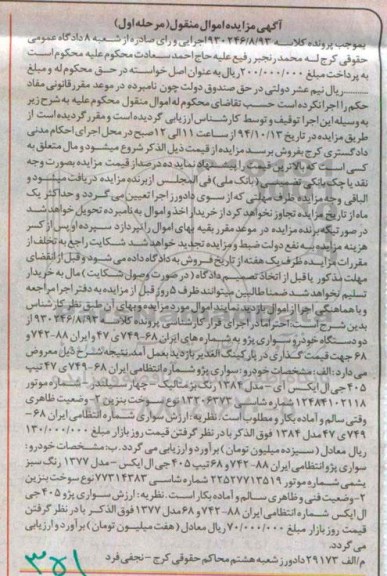 آگهی مزایده اموال منقول (مرحله اول)
بموجب پرونده کلاسه ۹۳۰۲۴۶/۸/۹۳ اجرایی و رای صادره از شعبه ۸ دادگاه عمومی
حقوقی کرج له محمد رنجبر رفیع علیه حاج احمد سعادت محکوم علیه محکوم است
به پرداخت مبلغ ۲۰۰/۰۰۰/۰۰۰ ریال به عنوان اصل خواسته در حق محکوم له و مبلغ
ریال نیم عشر دولتی در حق صندوق دولت چون نامبرده در موعد مقرر قانونی مفاد
حکم را اجرا نکرده است حسب تقاضای محکوم له اموال منقول محکوم علیه به شرح زیر
به وسیله این اجرا توقیف و توسط کارشناس ارزیابی گردیده است و مقرر گردیده است از
طریق مزایده در تاریخ ۹۴/۱۰/۱۳ از ساعت ۱۱ الی ۱۲ صبح در محل اجرای احکام مدنی
دادگستری کرج بفروش برسد مزایده از قیمت ذیل الذکر شروع میشود و مال متعلق به
کسی است که بالاترین قیمت را پیشنهاد نماید ده درصد از قیمت مزایده بصورت وجه
نقد یا چک بانکی تضمینی (بانک ملی) فی المجلس از برنده مزایده دریافت میشود و
الباقی وجه مزایده ظرف مهلتی که از سوی دادورز اجرا تعیین می گردد و حداکثر یک
ماه از تاریخ مزایده تجاوز نخواهد کرد از خریدار اخذ و اموال به نامبرده تحویل خواهد شد
در صورتیکه برنده مزایده در موعد مقرر بقیه بهای اموال را نپردازد سپرده او پس از کسر
هزینه مزایده به نفع دولت ضبط و مزایده تجدید خواهد شد شکایت راجع به تخلف از
مقررات مزایده ظرف یک هفته از تاریخ فروش به دادگاه داده می شود و قبل از انقضای
مهلت مذکور یا قبل از اتخاذ تصمیم دادگاه (در صورت وصول شکایت) مال به خریدار
تسلیم نخواهد شد ضمنا طالبین میتوانند ظرف ۵ روز قبل از مزایده به دفتر اجرا مراجعه
و با هماهنگی اجرا از اموال بازدید نمایند اموال مورد مزایده و بهای آن طبق نظر کارشناس
بدین شرح است: احتراما در اجرای قرار کارشناسی پرونده کلاسه ۹۳۰۲۴۶/۸/۹۳
دو دستگاه خودرو سواری پژو به شماره های ایران ۶۸-۷۴۹ ی ۴۷ و ایران ۸۸-۷۴۲ و
۶۸ جهت قیمت گذاری در پارکینگ الغدیر بازدید بعمل آمد نتیجه بشرح ذیل معروض
می دارد: الف: مشخصات خودرو: سواری پژو شماره انتظامی ایران ۶۸-۷۴۹ ی ۴۷ تیپ
۴۰۵ جی ال ایکس آی - مدل ۱۳۸۴ رنگ بژ متالیک - چهار سیلندر - شماره موتور
۱۲۴۸۴۱۰۲۱۱۸ شماره شاسی ۱۳۲۰۶۳۷۳ نوع سوخت بنزین ۲- وضعیت ظاهری
وقتی سالم و آماده بکار و مطلوب است: نظریه: ارزش سواری شماره انتظامی ایران ۶۸-
۷۴۹ ی ۴۷ مدل ۱۳۸۴ فوق الذکر با در نظر گرفتن قیمت روز بازار مبلغ ۱۳۰/۰۰۰/۰۰۰
ریال معادل (سیزده میلیون تومان) برآورد و ارزیابی می گردد. ب: مشخصات خودرو:
سواری پژو انتظامی ایران ۸۸-۷۴۲ و ۶۸ تیپ ۴۰۵ جی ال ایکس - مدل ۱۳۷۷ رنگ سبز
یشمی شماره موتور ۲۲۵۲۷۷۱۳۵۱۹ شماره شاسی ۷۷۳۱۴۳۸۳ نوع سوخت بنزین
۲- وضعیت فنی و ظاهری سالم و آماده بکار است. نظریه: ارزش سواری پژو ۴۰۵ جی
ال ایکس شماره انتظامی ایران ۸۸-۷۴۲ و ۶۸ مدل ۱۳۷۷ فوق الذکر با در نظر گرفتن
قیمت روز بازار مبلغ ۷۰/۰۰۰/۰۰۰ ریال معادل (هفت میلیون تومان) برآورد و ارزیابی
می گردد.
م/الف ۲۹۱۷۳ دادورز شعبه هشتم محاکم حقوقی کرج - نجفی فرد